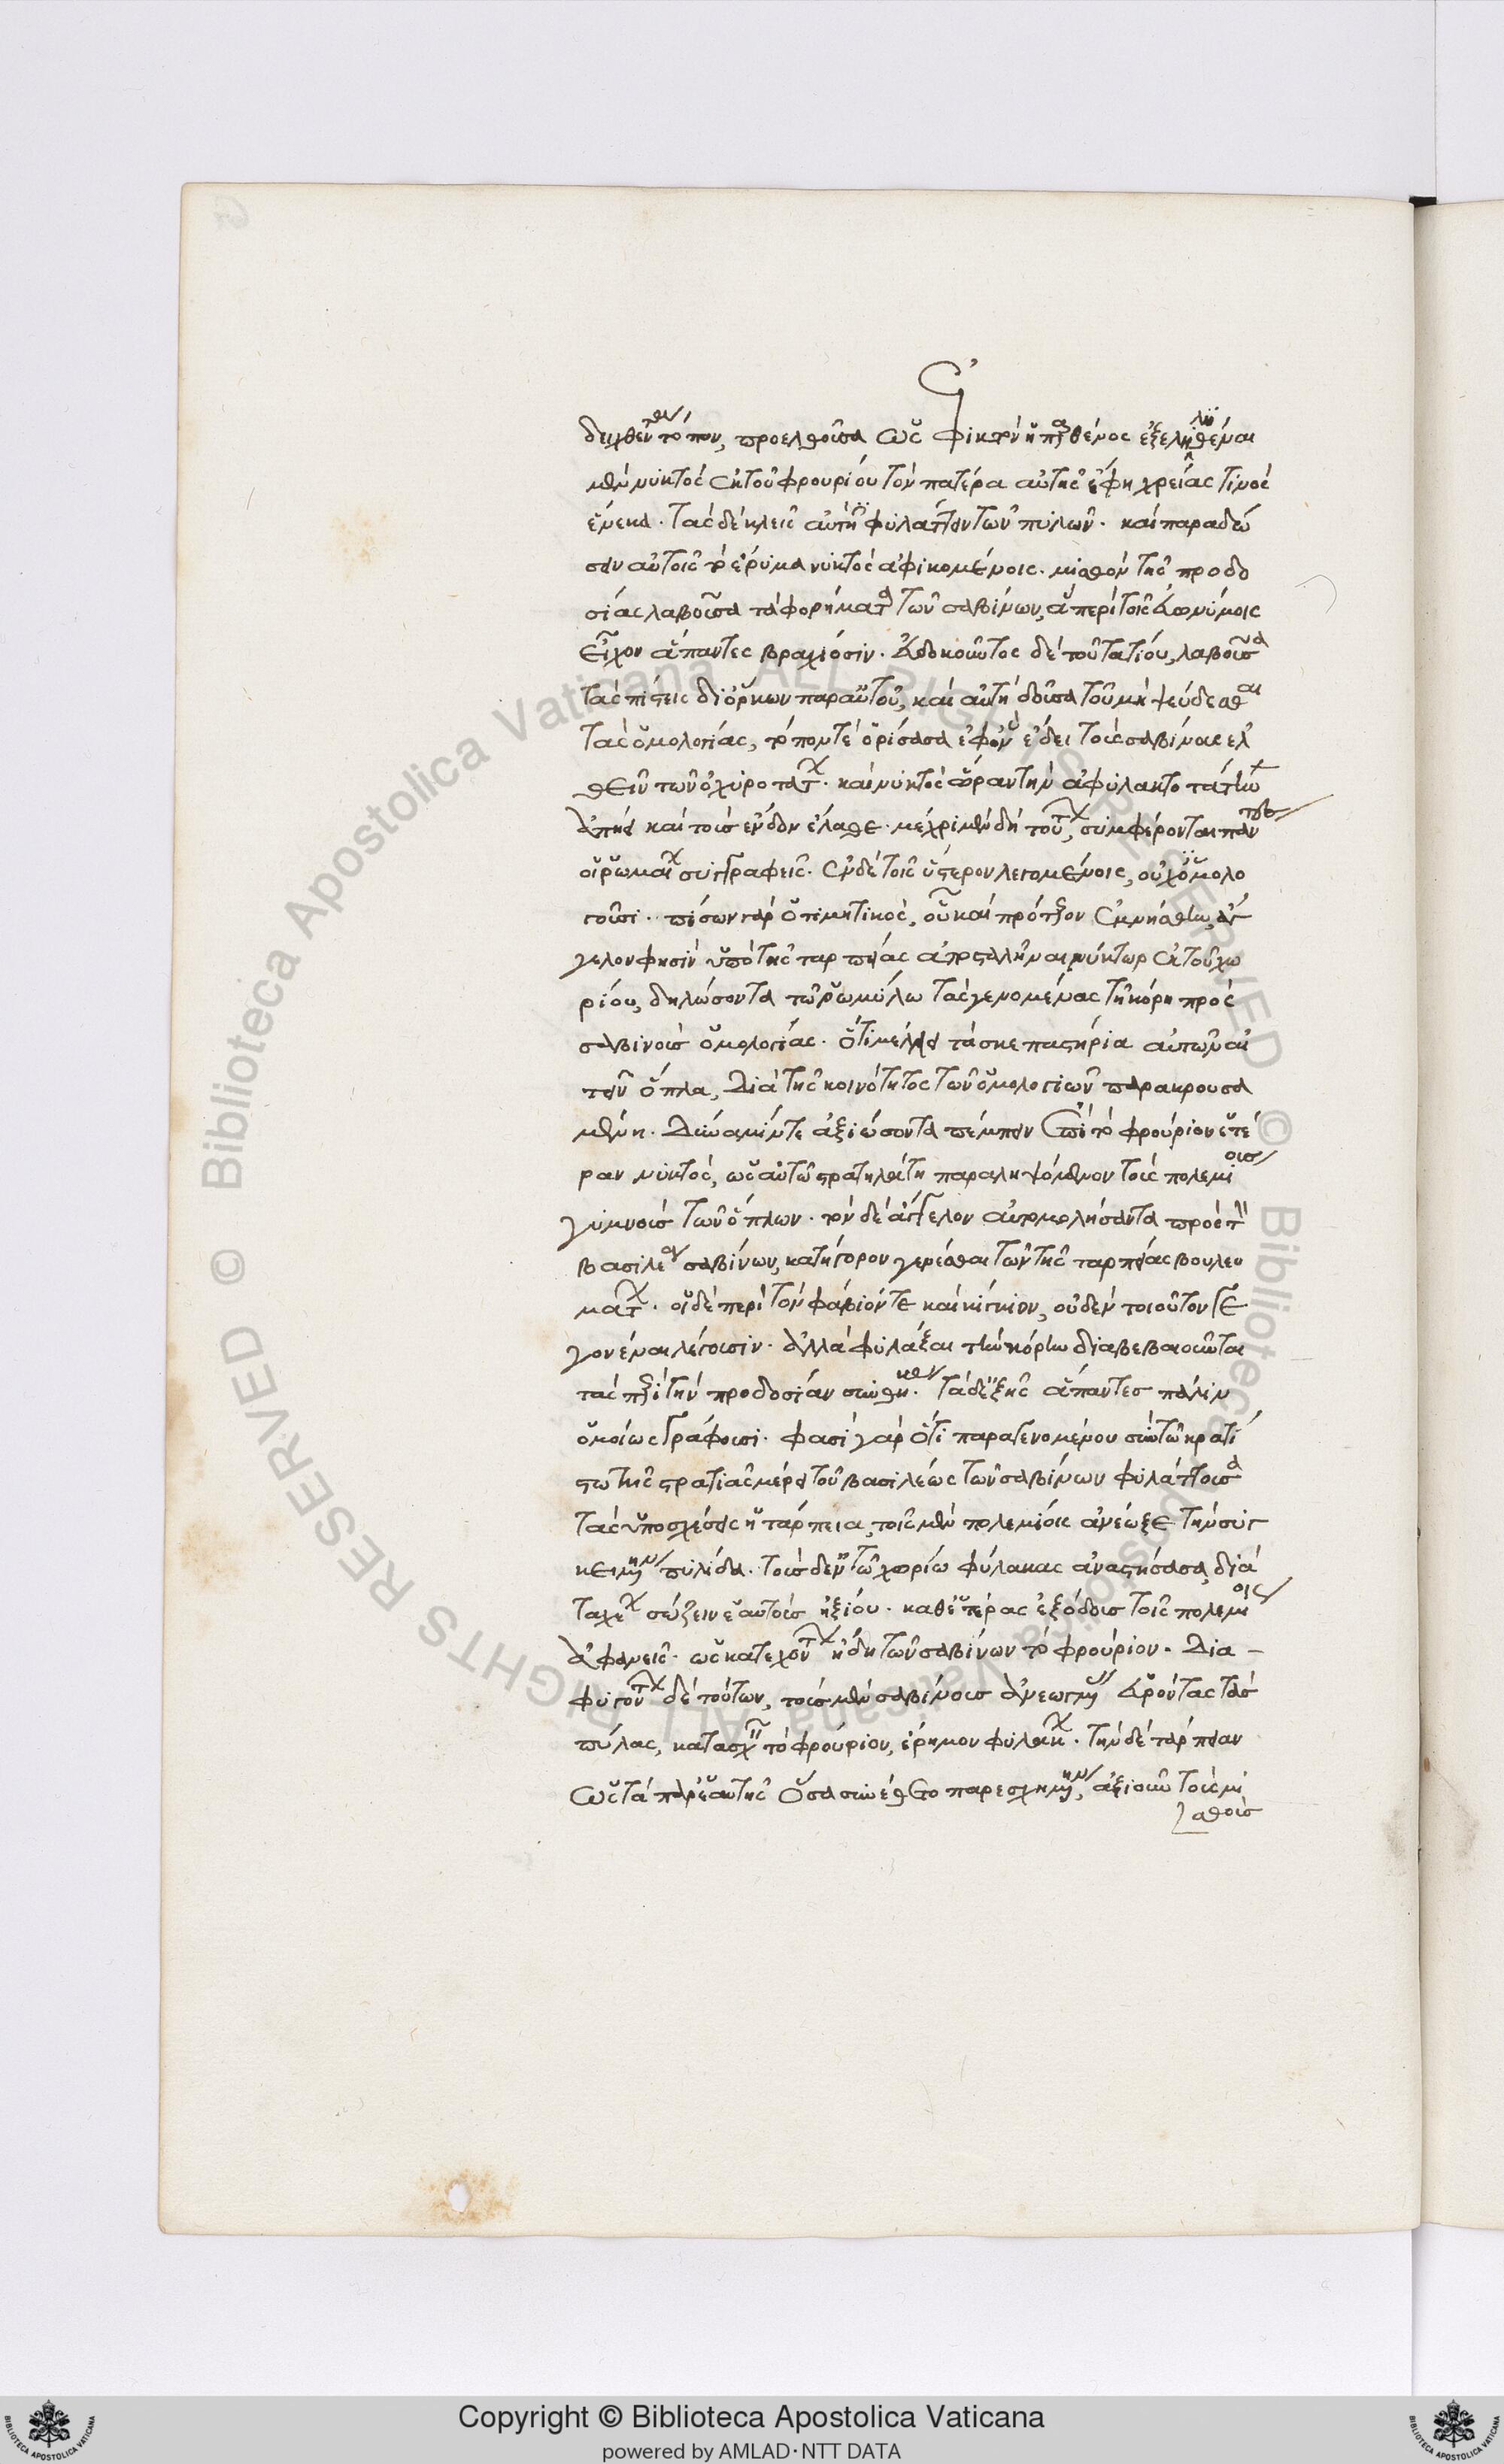 δειχθέντα τόπον, προελθοῦσα ὡς φίκτὸν ἡ παρθένος ἐξεληλυθέναι
μὲν νυκτὸς ἐκ τοῦ φρουρίου τὸν πατέρα αὐτῆς ἔφη χρείας τινὸς
ἕνεκα. τὰς δὲ κλεῖς αὐτὴ φυλάττειν τῶν πυλῶν. καὶ παραδώ
σειν αὐτοῖς τὸ ἔρυμα νυκτὸς ἀφικομένοις. μισθὸν τῆς προδο
σίας λαβοῦσα τὰ φορήματα τῶν σαβίνων, ἃ περὶ τοῖς εὐωνύμοις
εἶχον ἅπαντες βραχίοσιν. εὐδοκοῦντος δὲ τοῦ τατίου, λαβοῦσα
τὰς πίστεις δι' ὅρκων παρ' αὐτοῦ, καὶ αὐτὴ δοῦσα τοῦ μὴ ψεύδεσθαι
τὰς ὁμολογίας, τόπον τὲ ὁρίσασα ἐφ' ὃν ἔδει τοὺς σαβίνους ἐλ
θεῖν τῶν ὀχυροτάτων. καὶ νυκτὸς ὥραν τὴν ἀφυλακτοτάτην
ἀπῄει καὶ τοὺς ἔνδον ἔλαθε. μέχρι μὲν δὴ τούτων, συμφέρονται πάντες
οἱ ῥωμαίων συγγραφεῖς. ἐν δὲ τοῖς ὕστερον λεγομένοις, οὐχ ὁμολο
γοῦσι. πίσων γὰρ ὁ τιμητικός, οὗ καὶ πρότερον ἐμνήσθην, ἄγ
γελον φησὶν ὑπὸ τῆς ταρπείας ἀποσταλῆναι νύκτωρ ἐκ τοῦ χω
ρίου, δηλώσοντα τῷ ῥωμύλῳ τὰς γενομένας τῇ κόρῃ πρὸς
σαβίνους ὁμολογίας. ὅτι μέλλει τὰ σκεπαστήρια αὐτῶν αἰ
τεῖν ὅπλα, διὰ τῆς κοινότητος τῶν ὁμολογιῶν παρακρουσα
μένη. δύναμίν τε ἀξιώσοντα πέμπειν ἐπὶ τὸ φρούριον ἑτέ
ραν νυκτός, ὡς αὐτῷ στρατηλάτῃ παραληψόμενον τοὺς πολεμίους
γυμνοὺς τῶν ὅπλων. τὸν δὲ ἄγγελον αὐτομολήσαντα πρὸς τὸν
βασιλέα σαβίνων, κατήγορον γενέσθαι τῶν τῆς ταρπείας βουλευ
μάτων. οἱ δὲ περὶ τὸν φάβιόν τε καὶ κίγκιον, οὐδὲν τοιοῦτον γε
γονέναι λέγουσιν. ἀλλὰ φυλάξαι τὴν κόρην διαβεβαιοῦνται
τὰς περὶ τὴν προδοσίαν συνθήκας. τὰ δ' ἑξῆς ἅπαντες πάλιν
ὁμοίως γράφουσι. φασὶ γὰρ ὅτι παραγενομένου σὺν τῷ κρατί
στῳ τῆς στρατιᾶς μέρει τοῦ βασιλέως τῶν σαβίνων φυλάττουσα
τὰς ὑποσχέσεις ἡ τάρπεια, τοῖς μὲν πολεμίοις ἀνέῳξε τὴν συγ
κειμένην πυλίδα. τοὺς δ' ἐν τῷ χωρίῳ φύλακας ἀναστήσασα, διὰ
ταχέων σώζειν ἑαυτοὺς ἠξίου. καθ' ἑτέρας ἐξόδους τοῖς πολεμίοις
ἀφανεῖς. ὡς κατεχόντων ἤδη τῶν σαβίνων τὸ φρούριον. Δια-
φυγόντων δὲ τούτων, τοὺς μὲν σαβίνους ἀνεῳγμένας εὑρόντας τὰς
πύλας, κατασχεῖν τὸ φρούριον, ἔρημον φυλάκων. τὴν δὲ τάρπειαν
ὡς τὰ παρ' ἑαυτῆς ὅσα συνέθετο παρεσχημένην, ἀξιοῦν τοὺς μι
σθοὺς